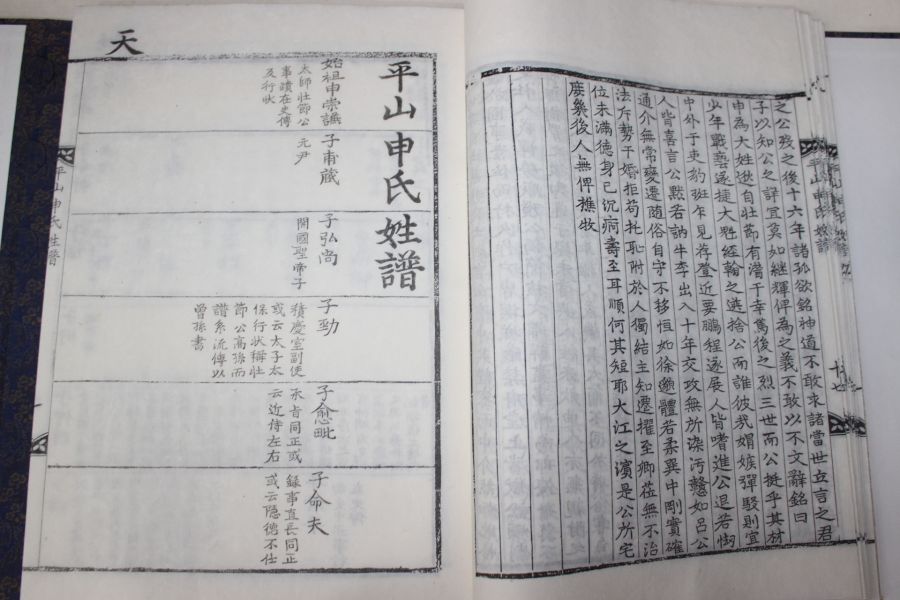 之公歿之後十六年諸孤欲銘神道不敢求諸當世立言之君
子以知公之詳宜莫如継輝俾為之義不敢以不文辭銘曰
申為大姓逖自壯節有濳于幸篤後之烈三世而公挺乎其材
少年戰藝遂捷大魁經翰之選捨公而誰彼哉媢嫉彈駁則宜
中外于吏豹班乍見荐登近要鵬程逐展人皆嗜進公退若
人皆喜言公黙若訥牛李出入十年交攻無所染汚懿如呂公
通介無常變遷随俗自守不移恒如徐邈體若柔巽中剛實確
法斥勢干婚拒苟托恥附於人獨結主知遷擢至卿莅無不治
位未滿德身已沉痾壽至耳順何其短耶大江之濱是公所宅
庻㡬後人無俾樵牧
平山申氏姓譜
十七
天
平山申氏姓譜
始祖申崇謙
太師壯節公
事蹟在史傳
及行狀
子甫蔵
元尹
子弘尚
開國聖帝子
子勁
積慶室副使
或云太子太
保行狀稱壯
節公高孫而
譜系流傳以
曾孫書
子愈毗
丞旨同正或
云近侍左右
子命夫
錄事直長同正
或云隱德不仕
平山申氏姓譜
一